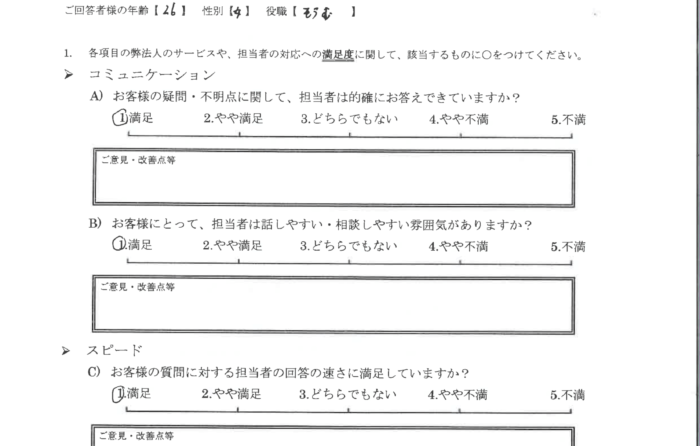 ご回答者様の年齢【26】 性別【女】 役職【そうむ】
1. 各項目の弊法人のサービスや、担当者の対応への満足度に関して、該当するものに○をつけてください。
➢ コミュニケーション
A) お客様の疑問・不明点に関して、担当者は的確にお答えできていますか?
1.満足 2.やや満足 3.どちらでもない 4.やや不満 5.不満
ご意見・改善点等
B) お客様にとって、担当者は話しやすい・相談しやすい雰囲気がありますか?
1.満足 2.やや満足 3.どちらでもない 4.やや不満 5.不満
ご意見・改善点等
➢ スピード
C) お客様の質問に対する担当者の回答の速さに満足していますか?
1.満足 2.やや満足 3.どちらでもない 4.やや不満 5.不満
ご意見・改善点等